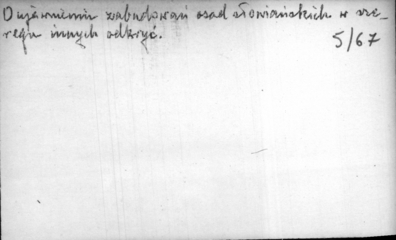 O ujawnieniu zabudowań osad słowiańskich w sze-
regu innych odkryć.
5/67